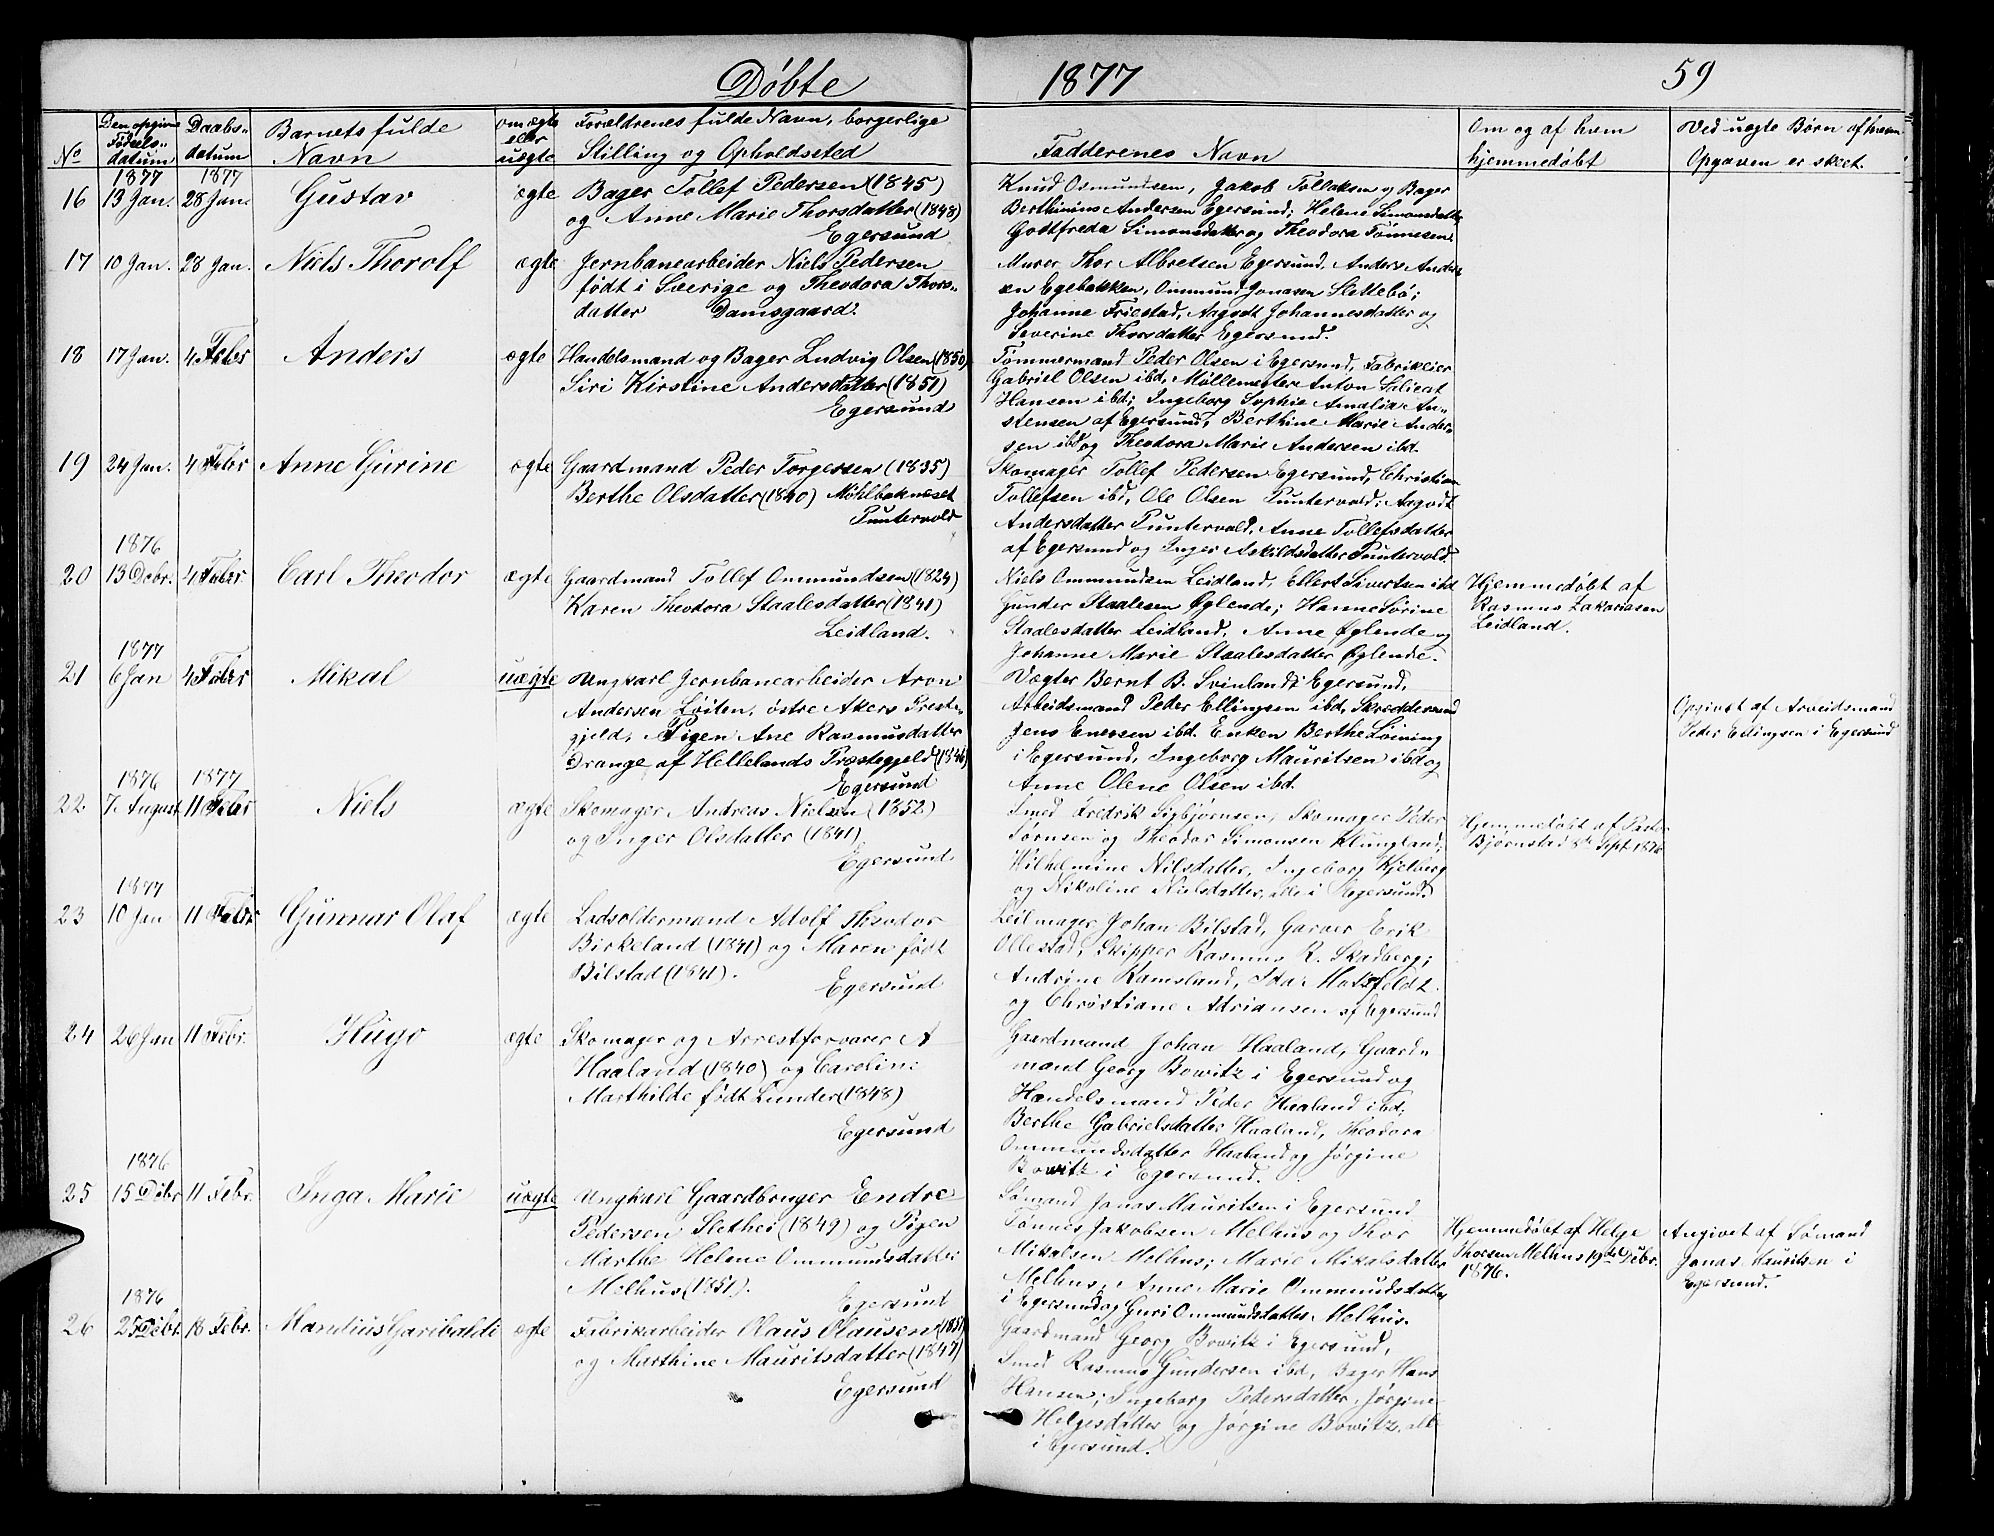 Døbte 1877 59
No
Den opgivne Fødsels-datum
Daabs-datum
Barnets fulde Navn
om ægte eller uægte
Forældrenes fulde Navn, borgerlige
Stilling og Opholdssted
Faddernes Navn
Om og af hvem
hjemmedøbt
Ved uægte Børn af hvem
Opgaven er skeet.
1877 1877
16 13 Jan. 28 Jan. Gustav ægte
Bager Tollef Pedersen (1845)
og Anne Marie Thorsdatter (1848)
Egersund
Knud Osmundsen, Jakob Tollaksen og Bager
Berthinius Andersen Egersund; Helene Simonsdatter
Godtfreda Simonsdatter og Theodora Tønnesen
17 10 Jan. 28 Jan. Niels Thorolf ægte
Jernbanearbeider Niels Pedersen
født i Sverige og Theodora Thors-
datter Damsgaard.
Murer Thor Albretsen Egersund, Anders Ander
sen Egebakken, Ommund Jonasen Slettebø;
Johanne Friestad, Aagodt Johannesdatter og
Severine Thorsdatter Egersund.
18 17 Jan. 4 Febr Anders ægte
Handelsmand og Bager Ludvig Olsen (1850)
Siri Kirstine Andersdatter (1851)
Egersund
Tømmermand Peder Olsen i Egersund, Fabrikeier
Gabriel Olsen ibd, Møllemester Anton
Hansen ibd; Ingeborg Sophie Amalia An-
stensen af Egersund, Berthine Marie Ander-
sen ibd og Theodora Marie Andersen ibd.
19 24 Jan. 4 Febr Anne Gurine ægte
Gaardmand Peder Torgersen (1835)
Berthe Olsdatter (1840) Møhlbaknæset
Puntervold
Skomager Tollef Pedersen Egersund, Christian
Tollefsen ibd, Ole Olsen Puntervold; Aagodt
Andersdatter Puntervold, Anne Tollefsdatter
af Egersund og Inger Askildsdatter Puntervold
1876
20 13 Debr. 4 Febr Carl Theodor ægte
Gaardmand Tollef Ommundsen (1824)
Karen Theodora Staalesdatter (1841)
Leidland.
Niels Ommundsen Leidland, Ellert Sivertsen ibd
Gunder Staalesen Øglende; Hanne Sørine
Staalesdatter Leidland, Anne Øglende og
Johanne Marie Staalesdatter Øglende.
Hjemmedøbt af
Rasmus Zakariasen
Leidland.
1877
21 6 Jan 4 Febr Mikal uægte
Ungkarl Jernbanearbeider Aron
Andersen Løiten, østre Akers Preste-
gjeld, Pigen Ane Rasmusdatter
Drange af Hellelands Præstegjeld (1846)
Egersund
Vægter Bernt B. Svinland i Egersund,
Arbeidsmand Peder Ellingsen ibd, Skreddersvend
Jens Enersen ibd. Enken Berthe Loining
i Egersund, Ingeborg Mauritsen ibd og
Anne Olene Olsen ibd.
Opgivet af Arbeidsmand
Peder Ellingsen i Egersund
1876 1877
22. 7. August 11 Febr Niels ægte
Skomager Andreas Nielsen (1852)
og Inger Olsdatter (1841)
Egersund
Smed Fredrik Sigbjørnsen, Skomager Peder
Tørnsen og Theodor Simonsen Klungland;
Wilhelmine Nilsdatter, Ingeborg Kjelberg
og Nikoline Nielsdatter, alle i Egersund.
Hjemmedøbt af Pastor
Bjørnstad 8de Sept 1876
1877
23 10 Jan 11 Febr Gunnar Olaf ægte
Ladsoldermand Adolf Theodor
Birkeland (1841) og Maren født
Bilstad (1841).
Egersund
Seilmager Johan Bilstad, Garver Erik
Ollestad, Skipper Rasmus R. Skadberg;
Andrine Ramsland, Ida Motzfeldt
og Christiane Adriansen af Egersund
24 26 Jan 11 Febr. Hugo ægte
Skomager og Arrestforvarer A
Haaland (1840) og Caroline
Marthilde født Lunder (1848)
Egersund
Gaardmand Johan Haaland, Gaard-
mand Georg Bowitz i Egersund og
Handelsmand Peder Haaland ibd;
Berthe Gabrielsdatter Haaland, Theodora
Ommundsdatter Haaland og Jørgine
Bowitz i Egersund.
1876
25 15 Debr 11 Febr. Inga Marie uægte
Ungkarl Gaardbruger Endre
Pedersen Slethei (1849) og Pigen
Marthe Helene Ommundsdatter
Melhus (1851).
Egersund
Sømand Jonas Mauritsen i Egersund
Tønnes Jakobsen Melhus og Thor
Mikalsen Melhus; Marie Mikalsdatter
Melhus, Anne Marie Ommundsdatter
i Egersund og Guri Ommundsdatter Melhus.
Hjemmedøbt af Helge
Thorsen Melhus 19de Debr.
1876.
Angivet af Sømand
Jonas Mauritsen i
Egersund.
1876
26 25 Debr 18 Febr. Mandius Garibaldi ægte
Fabrikarbeider Olaus Olausen (1851)
og Marthine Mauritsdatter (1847)
Egersund
Gaardmand Georg Bowitz i Egersund,
Smed Rasmus Gundersen ibd, Bager Hans
Hansen; Ingeborg Pedersdatter, Jørgine
Helgesdatter og Jørgine Bowitz, alle
i Egersund.